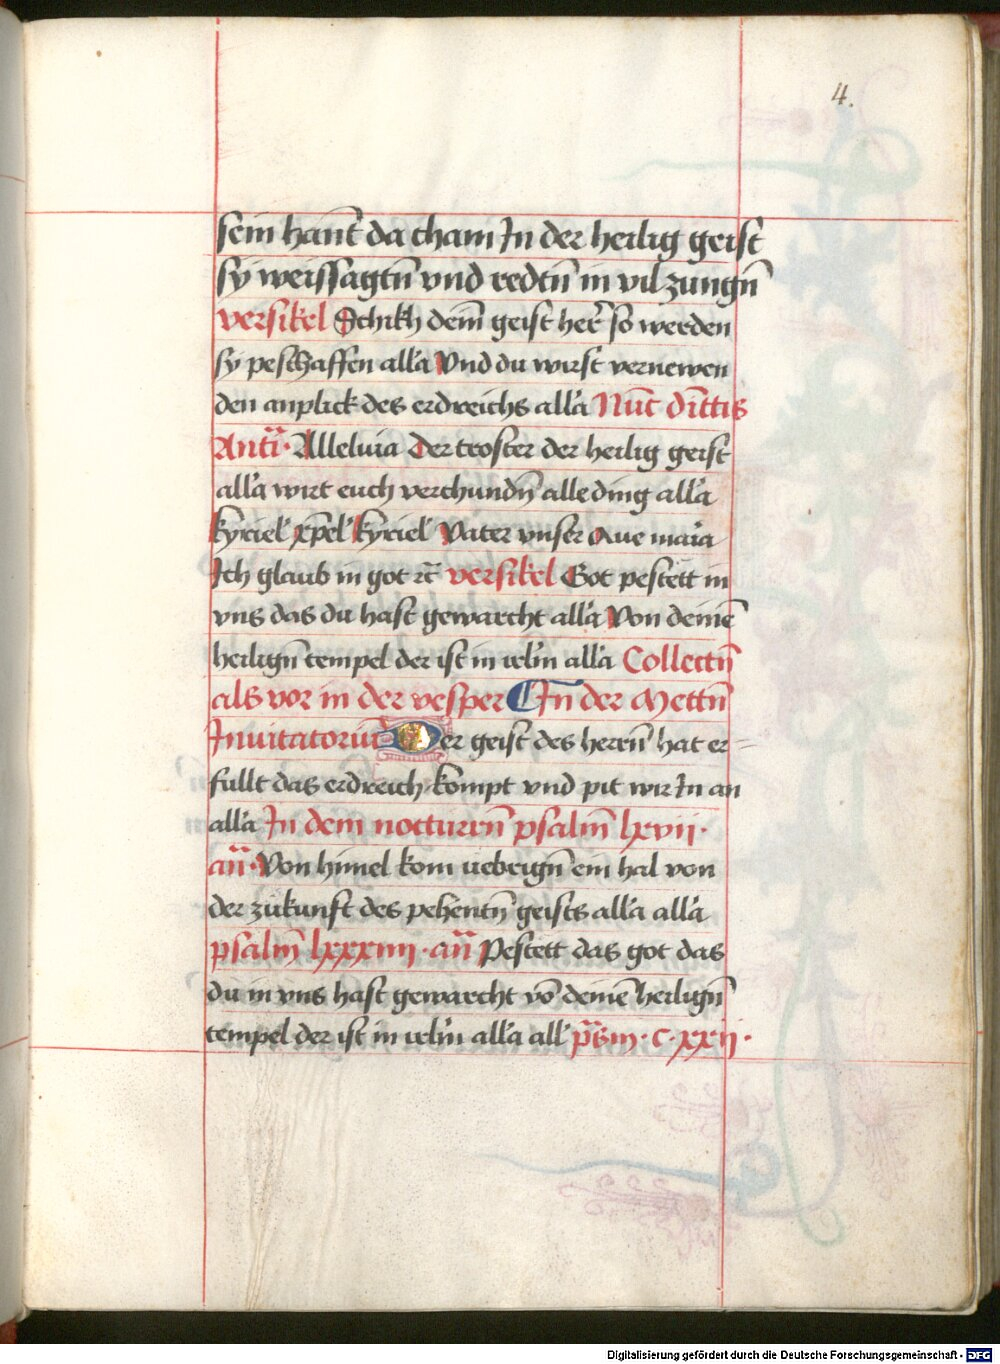 4.
sein hant̄ da cham Jn der heilig geist
sy weissagtn̄ vnd redtn̄ in vil zungn̄
versikel Schikh dein̄ geist her̄ so werden
sy peschaffen all'a Vnd du wirst vernewen
den anplick des erdreichs all'a Nuc̄ dīttis
Antī. Alleluia Der troster der heilig geist
all'a wirt euch verchundn̄ alle ding all'a
kyriel' xp̄el' kyriel' Vater vnser Aue mar'a
Ich glaub in got rc̄ versikel Got pestett in
vns das du hast gewarcht all'a Von deinē
heilign̄ tempel der ist in irl'm all'a Collectn̄
als vor in der vesper In der Mettn̄
Inuitatoriū Der geist des herrn̄ hat er=
fullt das erdreich kompt vnd pit wir Jn an
all'a In dem notturrn̄ psalm̄ lxvii.
an̄. Von himel kom uebeign̄ ein hal von
der zukunft des pehentn̄ geists all'a all'a
psalm̄ lxxxiiii. an̄ Pestett das got das
du in vns hast gewarcht vō deinē heilign̄
tempel der ist in irl'm all'a all' p̄sm. c. xxii.
Digitalisierung gefördert durch die Deutsche Forschungsgemeinschaft - DFG